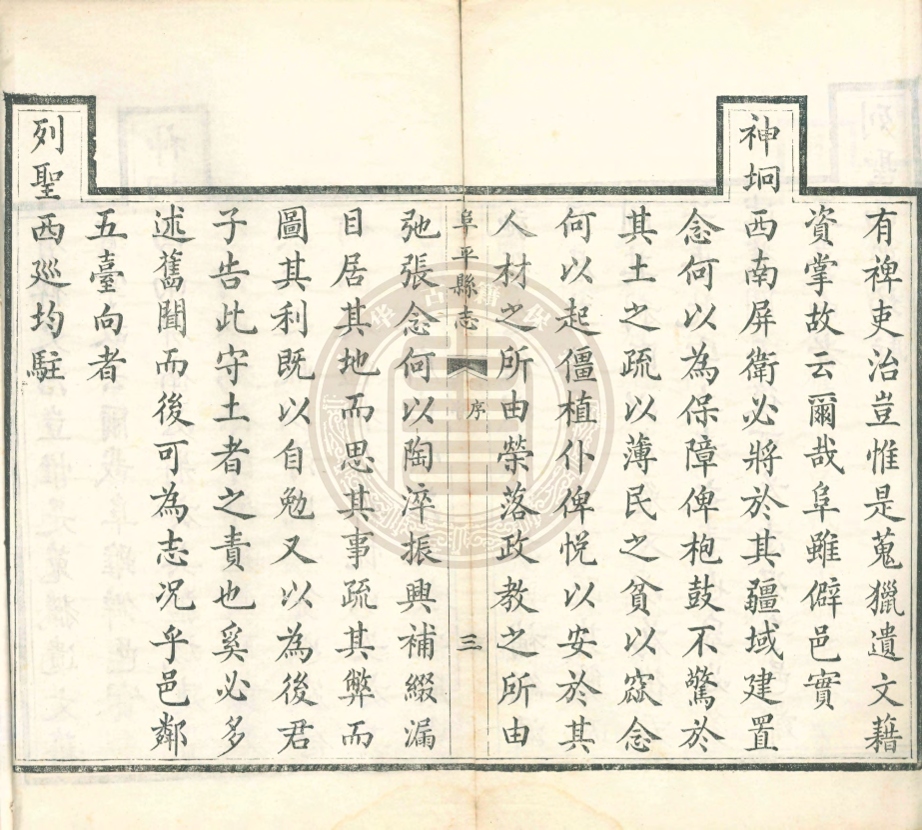 有裨吏治豈惟是蒐獵遺文藉
資掌故云爾哉阜雖僻邑實
神坰西南屏衛必將於其疆域建置
念何以為保障俾枹鼓不驚於
其土之疏以薄民之貧以窳念
何以起僵植仆俾悅以安於其
人材之所由榮落政教之所由
阜平縣志 序 三
弛張念何以陶淬振興補綴漏
目居其地而思其事疏其弊而
圖其利既以自勉又以為後君
子告此守土者之責也奚必多
述舊聞而後可為志況乎邑鄰
五臺向者
列聖西廵均駐